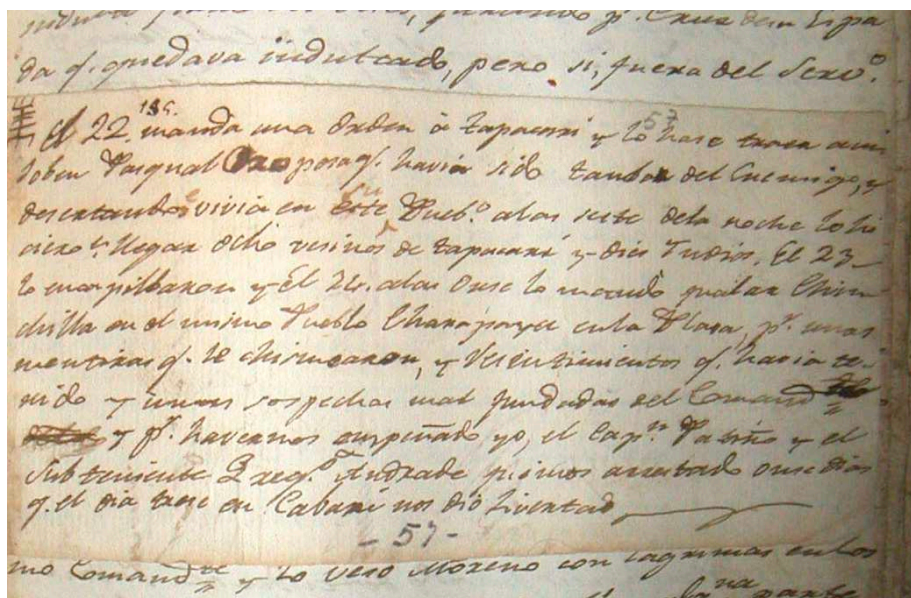 da q.e quedava indultado, pero si, fuera del Serv.o
El 22. manda una orden à Tapacarí y lo hase traer a un
Joben Pasqual Oro porq.e havia sido tambor del Enemigo, y
desertando vivia en este Pueb.o a las siete dela noche lo hi
ciero.n llegar ocho vesinos de Tapacarí y dies Indios. El 23
lo y El 24. alas onse lo mandó Chin
chilla en el mismo Pueblo Charapaya en la Plasa, p.r unas
mentiras q.e le chismearon, y Resentimientos q.e havia te-
nido y unas sospechas mal fundadas del Comand.te
y p.r havernos empeñado yo, el Cap.n Patiño y el
Subteniente Greg.o Andrade fuimos arrestado onse dias
q.e el dia trese en Cabari nos dió livertad
- 57 -
mo Comand.te y lo veso Moreno con lagrimas en los